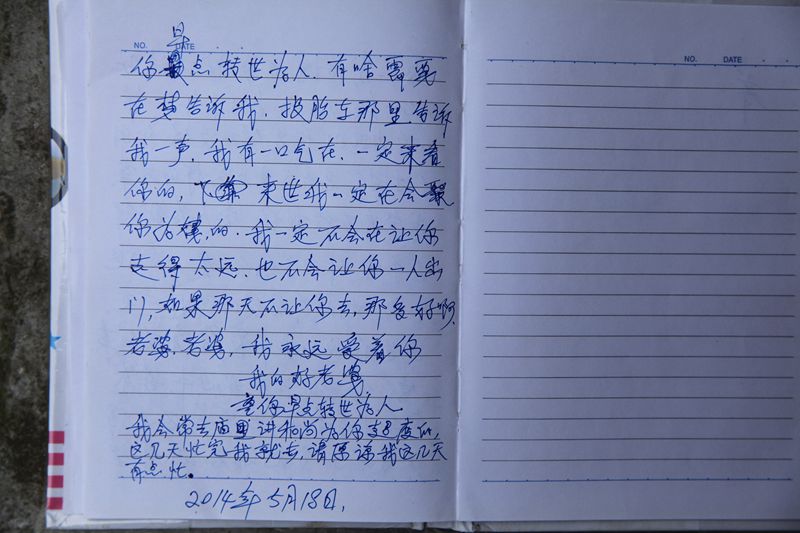 NO. DATE
早
你点转世为人.有啥需要
在梦告诉我.投胎在那里告诉
我一声.我有一口气在.一定来看
你的,下 来世我一定在会娶
你为妻的.我一定不会在让你
走得太远.也不会让你一人出
门,如果那天不让你去,那多好啊.
老婆.老婆,我永远爱着你
我的好老婆
望你早点转世为人
我会常去庙里讲和尚为你超度的,
这几天忙完我就去,请原谅我这几天
有点忙。
2014年5月18日.
NO. DATE